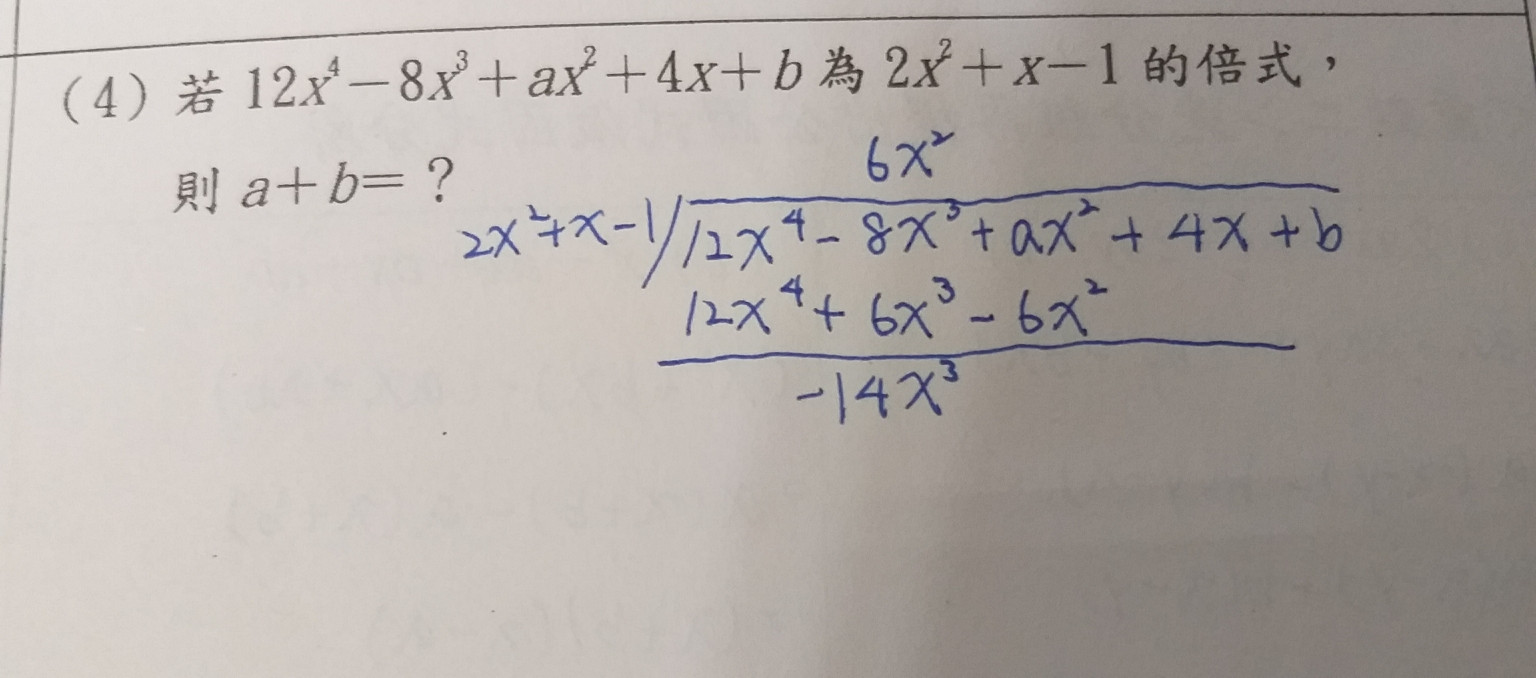 (4) 若 12x⁴－8x³＋ax²＋4x＋b 為 2x²＋x－1 的倍式，
則 a＋b＝？
6x²
2x²+x-1 / 12x⁴ - 8x³ + ax² + 4x + b
12x⁴ + 6x³ - 6x²
-14x³